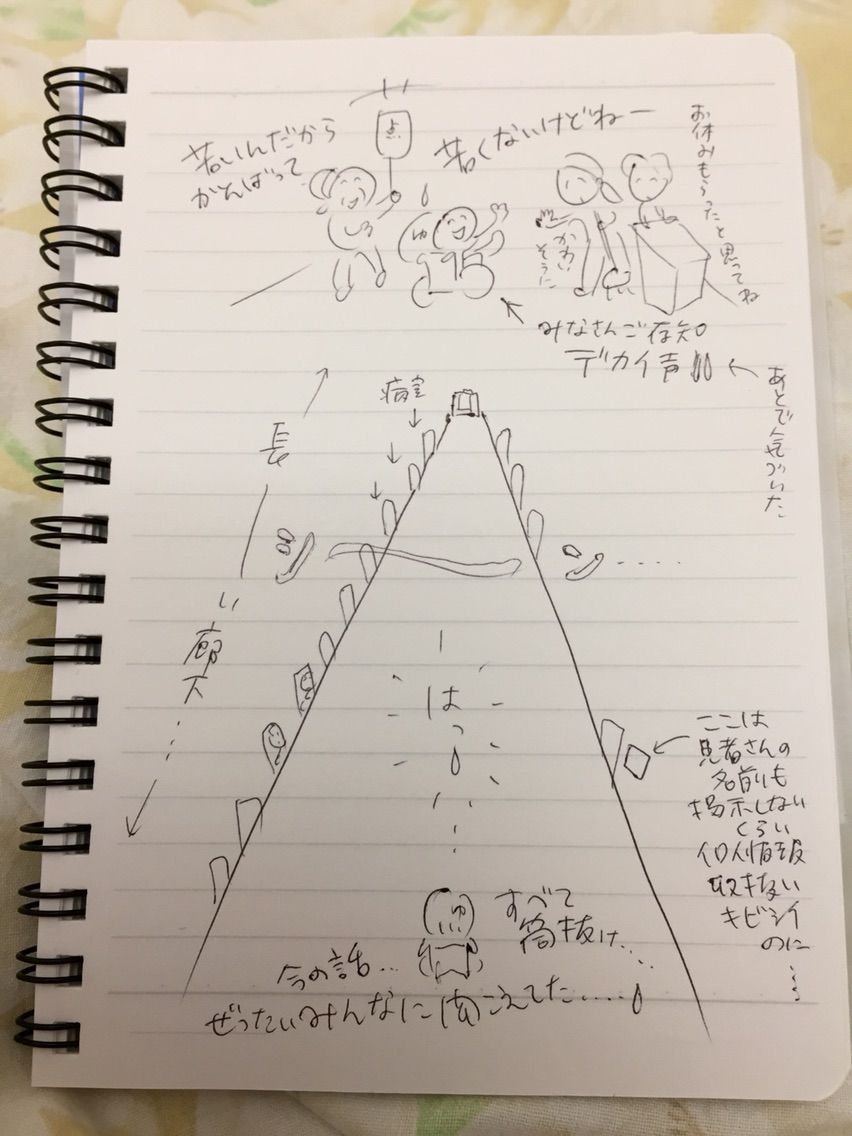 若いんだから
がんばって
点
若くないけどねー
お休みもらったと思ってね
ゆ
かわい
そうに
みなさんご存知
デカイ声
あとで気づいた
病室
長
い
廊
下
はっ
ここは
患者さんの
名前も
掲示しない
くらい
個人情報
キビシイ
のに…
ゆ
すべて
筒抜け…
今の話…
ぜったいみんなに聞こえてた……